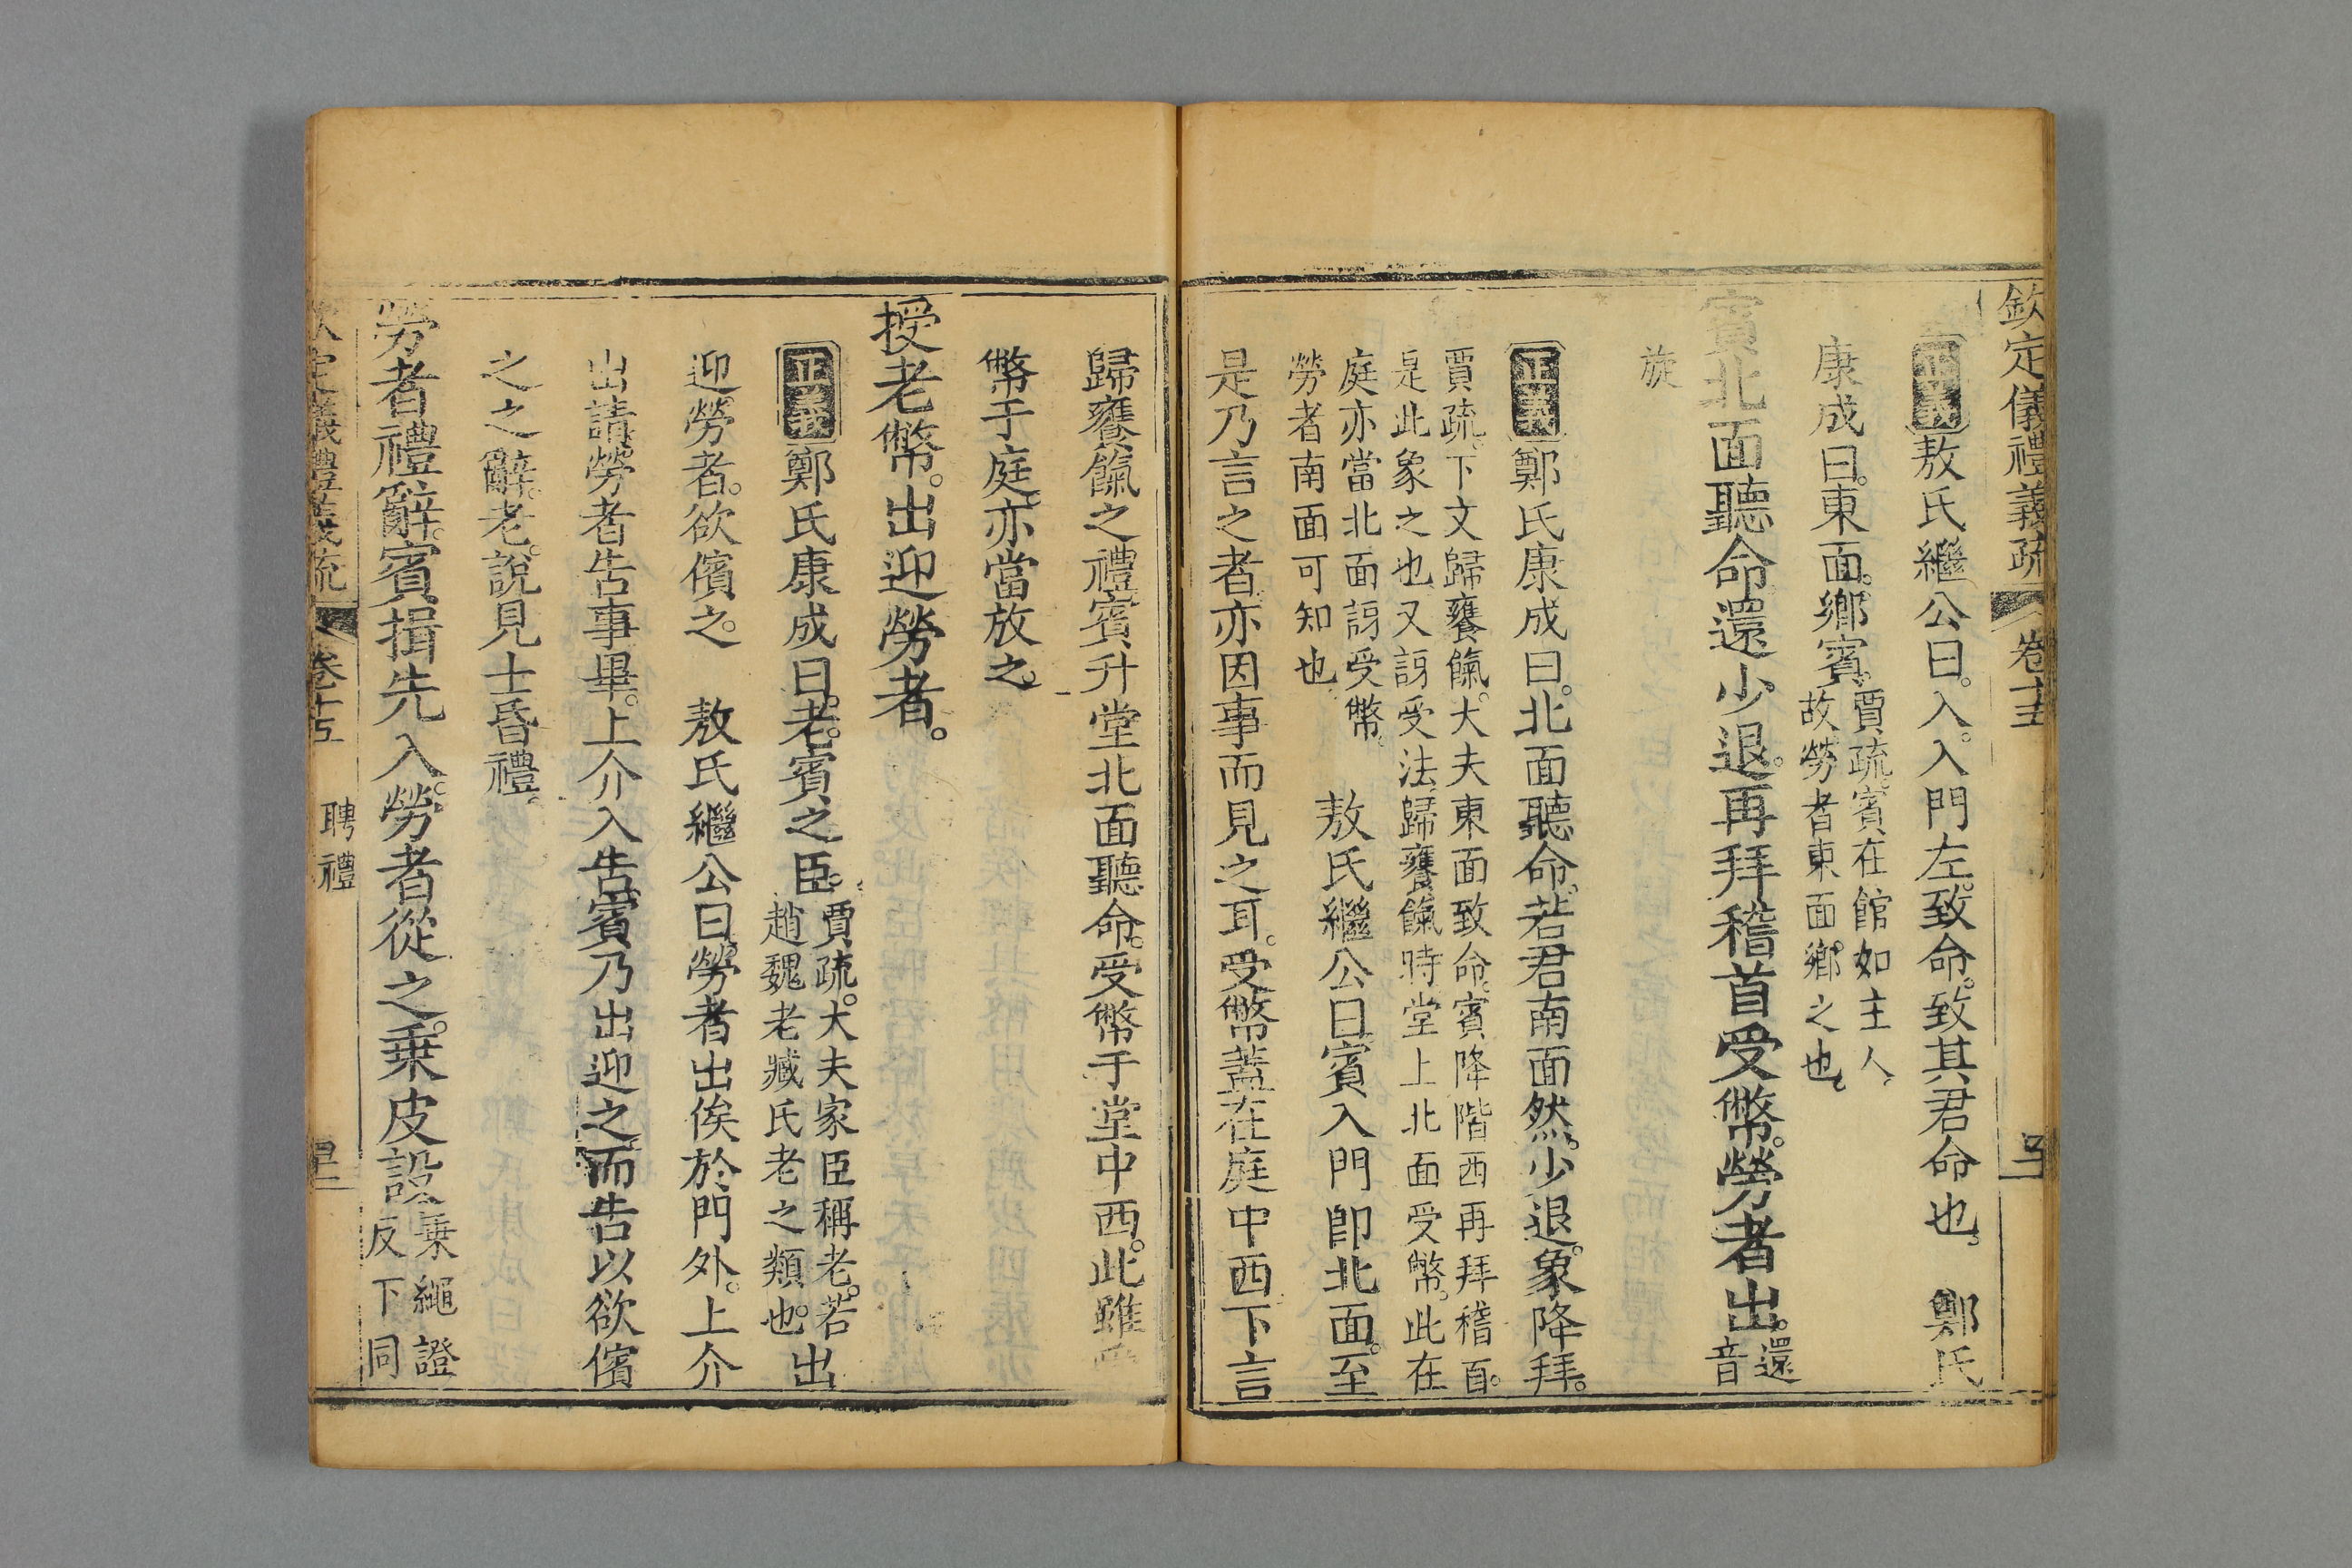 欽定儀禮義疏 卷十五
正義敖氏繼公曰。入。入門左。致命。致其君命也。 鄭氏
康成曰。東面。鄉賓。賈疏。賓在館如主人。
故勞者東面鄉之也。
賓北面聽命還少退。再拜稽首受幣。勞者出。還
音
旋
正義鄭氏康成曰。北面聽命。若君南面然。少退。象降拜。
賈疏。下文歸饔餼。大夫東面致命。賓降階西再拜稽首。
是此象之也。又訝受法。歸饔餼時堂上北面受幣。此在
庭亦當北面訝受幣。
勞者南面可知也。
敖氏繼公曰賓入門卽北面。至
是乃言之者。亦因事而見之耳。受幣蓋在庭中西下言
歸饔餼之禮賓升堂北面聽命。受幣于堂中西。此雖
幣于庭。亦當放之。
授老幣。出迎勞者。
正義鄭氏康成曰。老。賓之臣。賈疏。大夫家臣稱老。若
趙魏老臧氏老之類也。出
迎勞者。欲儐之。 敖氏繼公曰勞者出俟於門外。上介
出請。勞者告事畢。上介入告。賓乃出迎之。而告以欲儐
之之辭。老。說見士昏禮。
勞者禮辭。賓揖先入。勞者從之。乗皮設。乗繩證
反下同
欽定儀禮義疏 卷十五 聘禮